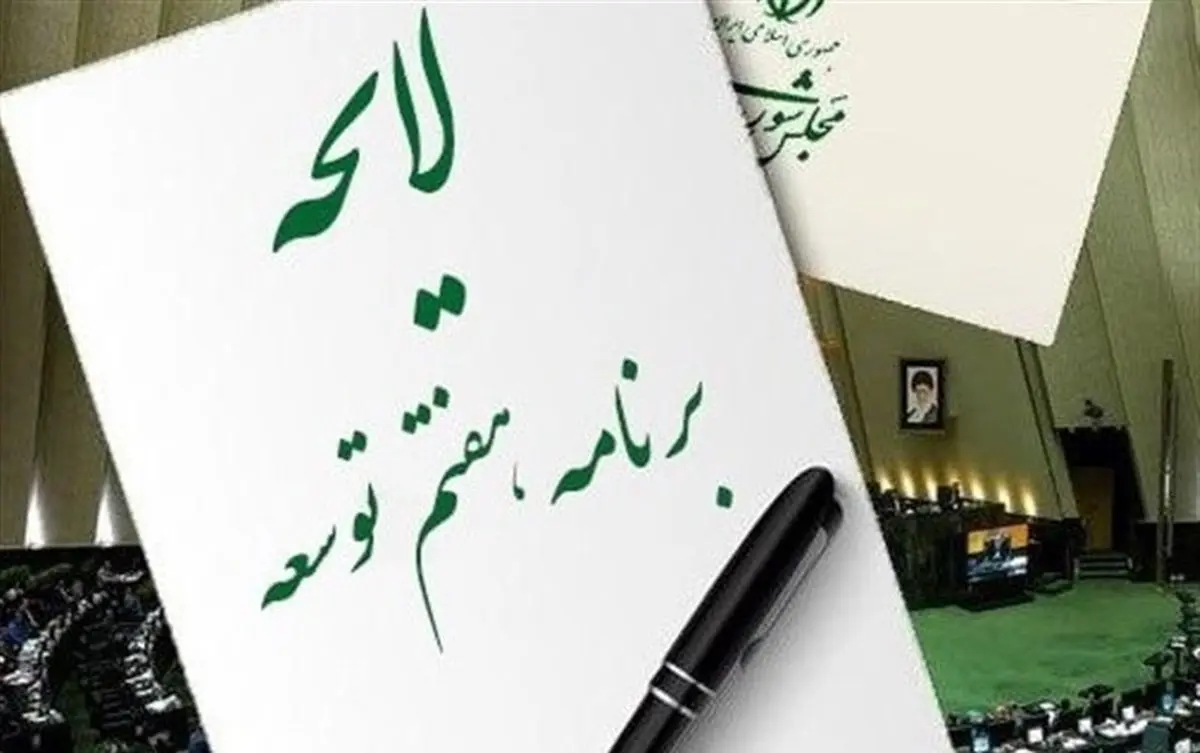 لایحه
برنامه هفتم توسعه
جمهوری اسلامی ایران
مجلس شورا